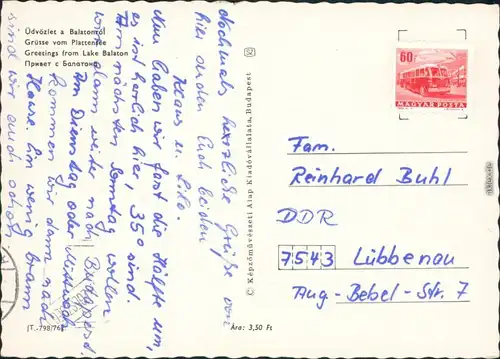 Üdvözlet a Balatonról
Grüsse vom Plattensee
Greetings from Lake Balaton
Привет с Балатона
Nochmals herzliche Grüße von
hier an den Euch beiden
Klaus u. Lilo.
Nun haben wir fast die Hälfte um,
es ist herlich hier, 35° sind.
Am nächsten Sonntag wollen
wir dann weiter nach Budapest.
Am Dienstag oder Mittwoch
kommen wir dann nach
Hause. Ein wenig braun
sind wir auch schon
JT.-798/76
Ára: 3,50 Ft
© Képzőművészeti Alap Kiadóvállalata, Budapest
52
60f
MAGYAR POSTA
Fam.
Reinhard Buhl
DDR
7543 Lübbenau
Aug-Bebel-Str. 7